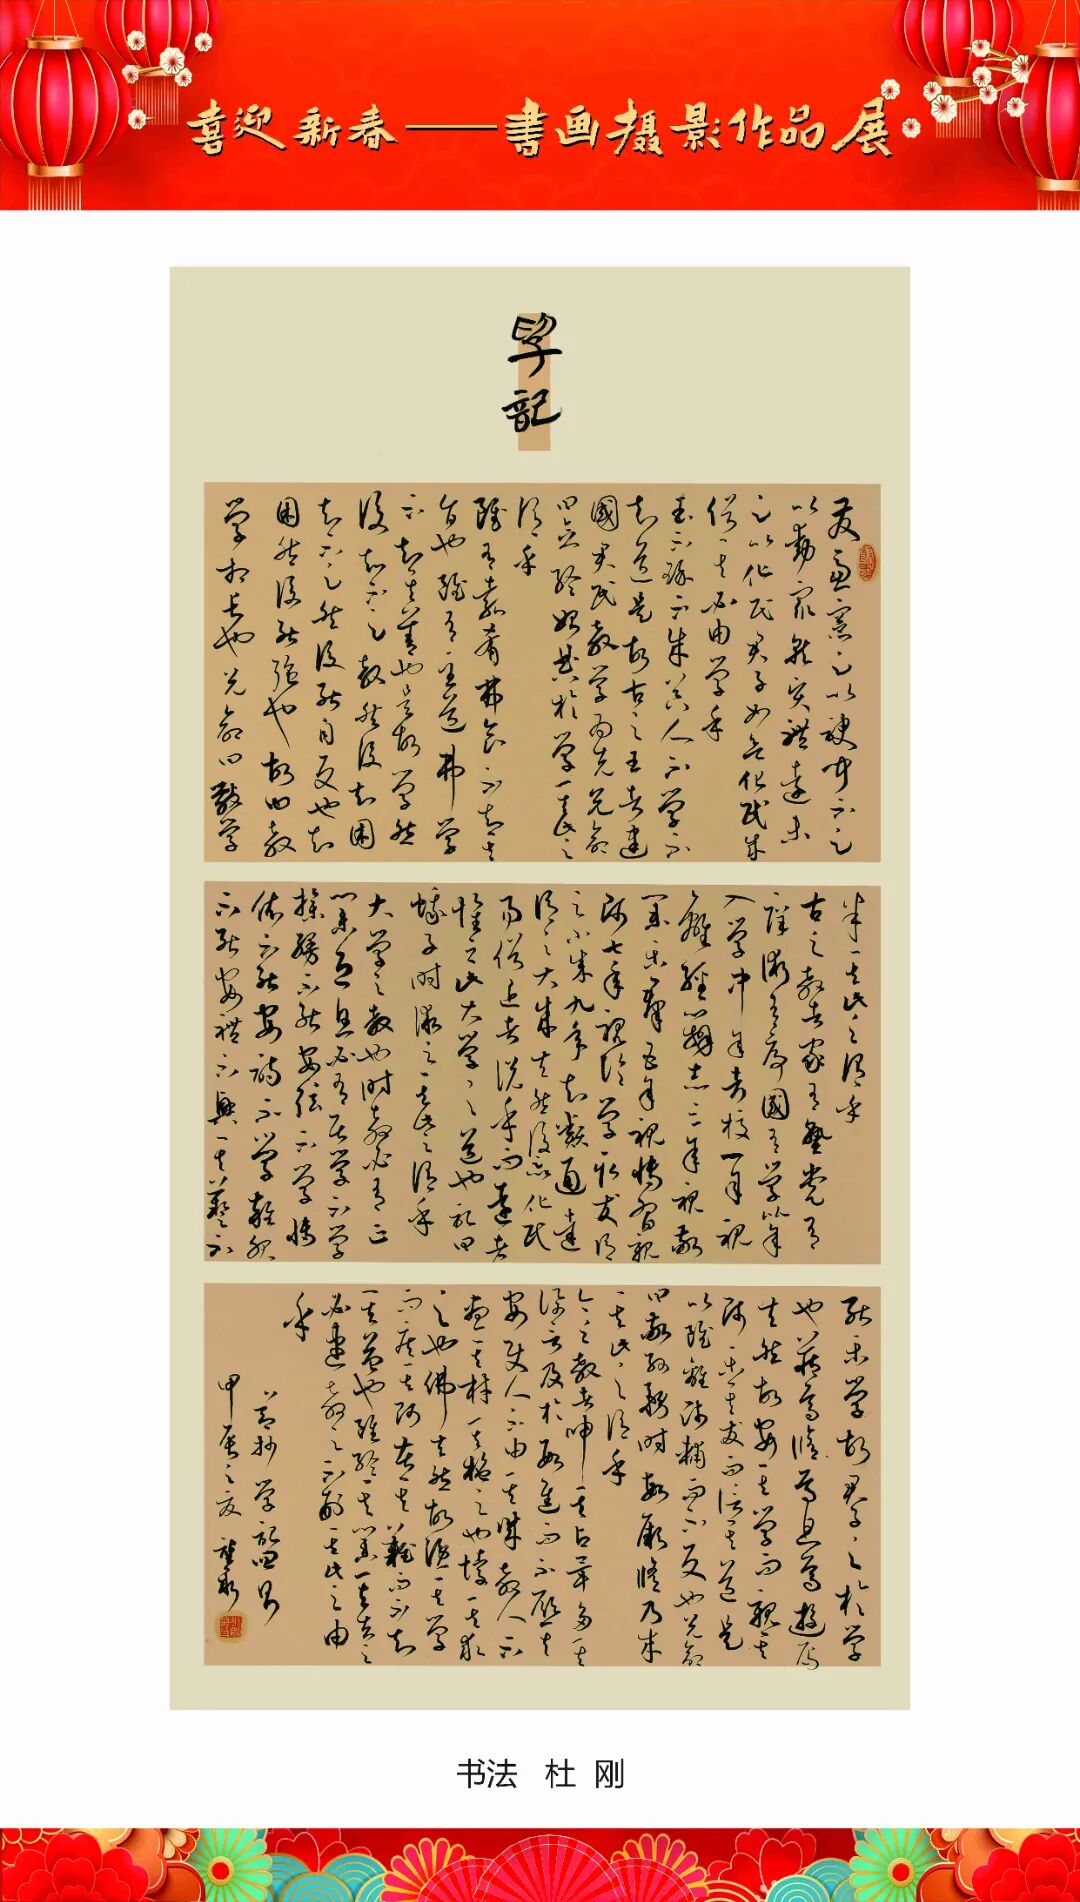 喜迎新春——书画摄影作品展
學記
發慮憲足以謏聞不足
以動眾就賢體遠未
足以化民君子如欲化民成
俗其必由學乎
玉不琢不成器人不學不
知道是故古之王者建
國君民教學為先兌命
曰念終始典於學其此之
謂乎
雖有嘉肴弗食不知其
旨也雖有至道弗學
不知其善也是故學然
後知不足教然後知困
知不足然後能自反也知
困然後能強也故曰教
學相長也兌命曰斅學
半其此之謂乎
古之教者家有塾黨有
庠術有序國有學比年
入學中年考校一年視
離經辨志三年視敬
業樂群五年視博習親
師七年視論學取友謂
之小成九年知類通達
謂之大成夫然後足以化民
易俗近者說乎而遠者
懷之此大學之道也記曰
蛾子時術之其此之謂乎
大學之教也時教必有正
業退息必有居學不學
操縵不能安弦不學博
依不能安詩不學雜服
不能安禮不興其藝不
能樂學故君子之於學
也藏焉脩焉息焉遊焉
夫然故安其學而親其
師樂其友而信其道是
以雖離師輔而不反也兌命
曰敬孫務時敏厥脩乃來
其此之謂乎
今之教者呻其佔畢多其
訊言及於數進而不顧其
安使人不由其誠教人不
盡其材其施之也悖其求
之也佛夫然故隱其學
而疾其師苦其難而不知
其益也雖終其業其去之
必速教之不刑其此之由
乎
節抄學記四則
甲辰之夏
书法 杜 刚